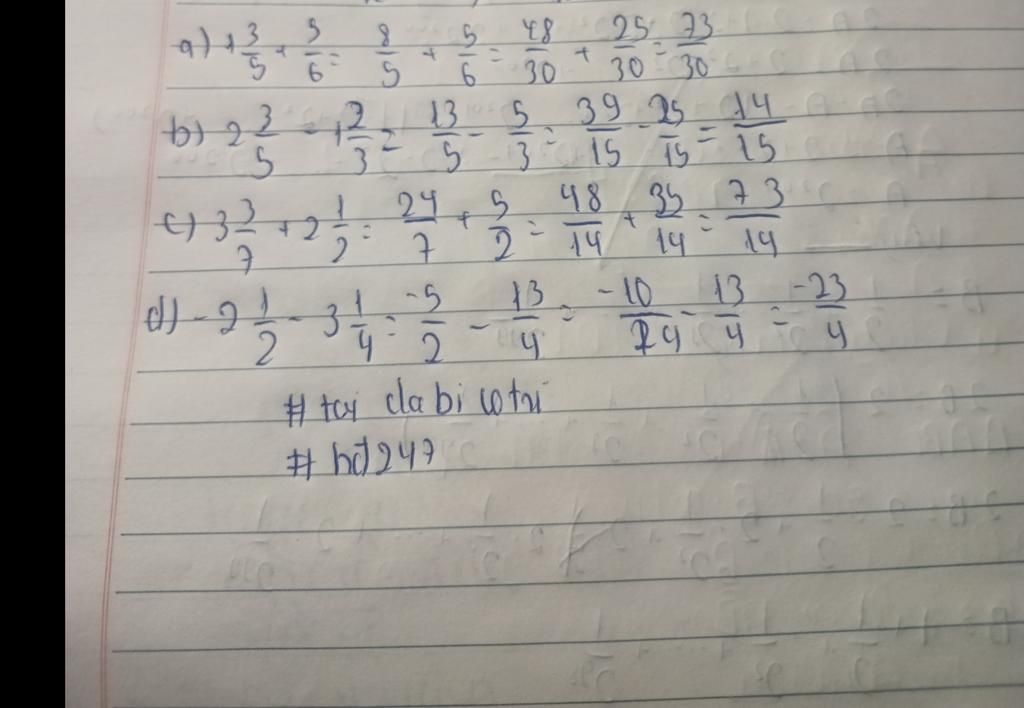 a) 1 3/5 + 5/6 = 8/5 + 5/6 = 48/30 + 25/30 = 73/30
b) 2 3/5 - 1 2/3 = 13/5 - 5/3 = 39/15 - 25/15 = 14/15
c) 3 3/7 + 2 1/2 = 24/7 + 5/2 = 48/14 + 35/14 = 73/14
d) - 2 1/2 - 3 1/4 = -5/2 - 13/4 = -10/4 - 13/4 = -23/4
# tại dabi cotri
# hd247